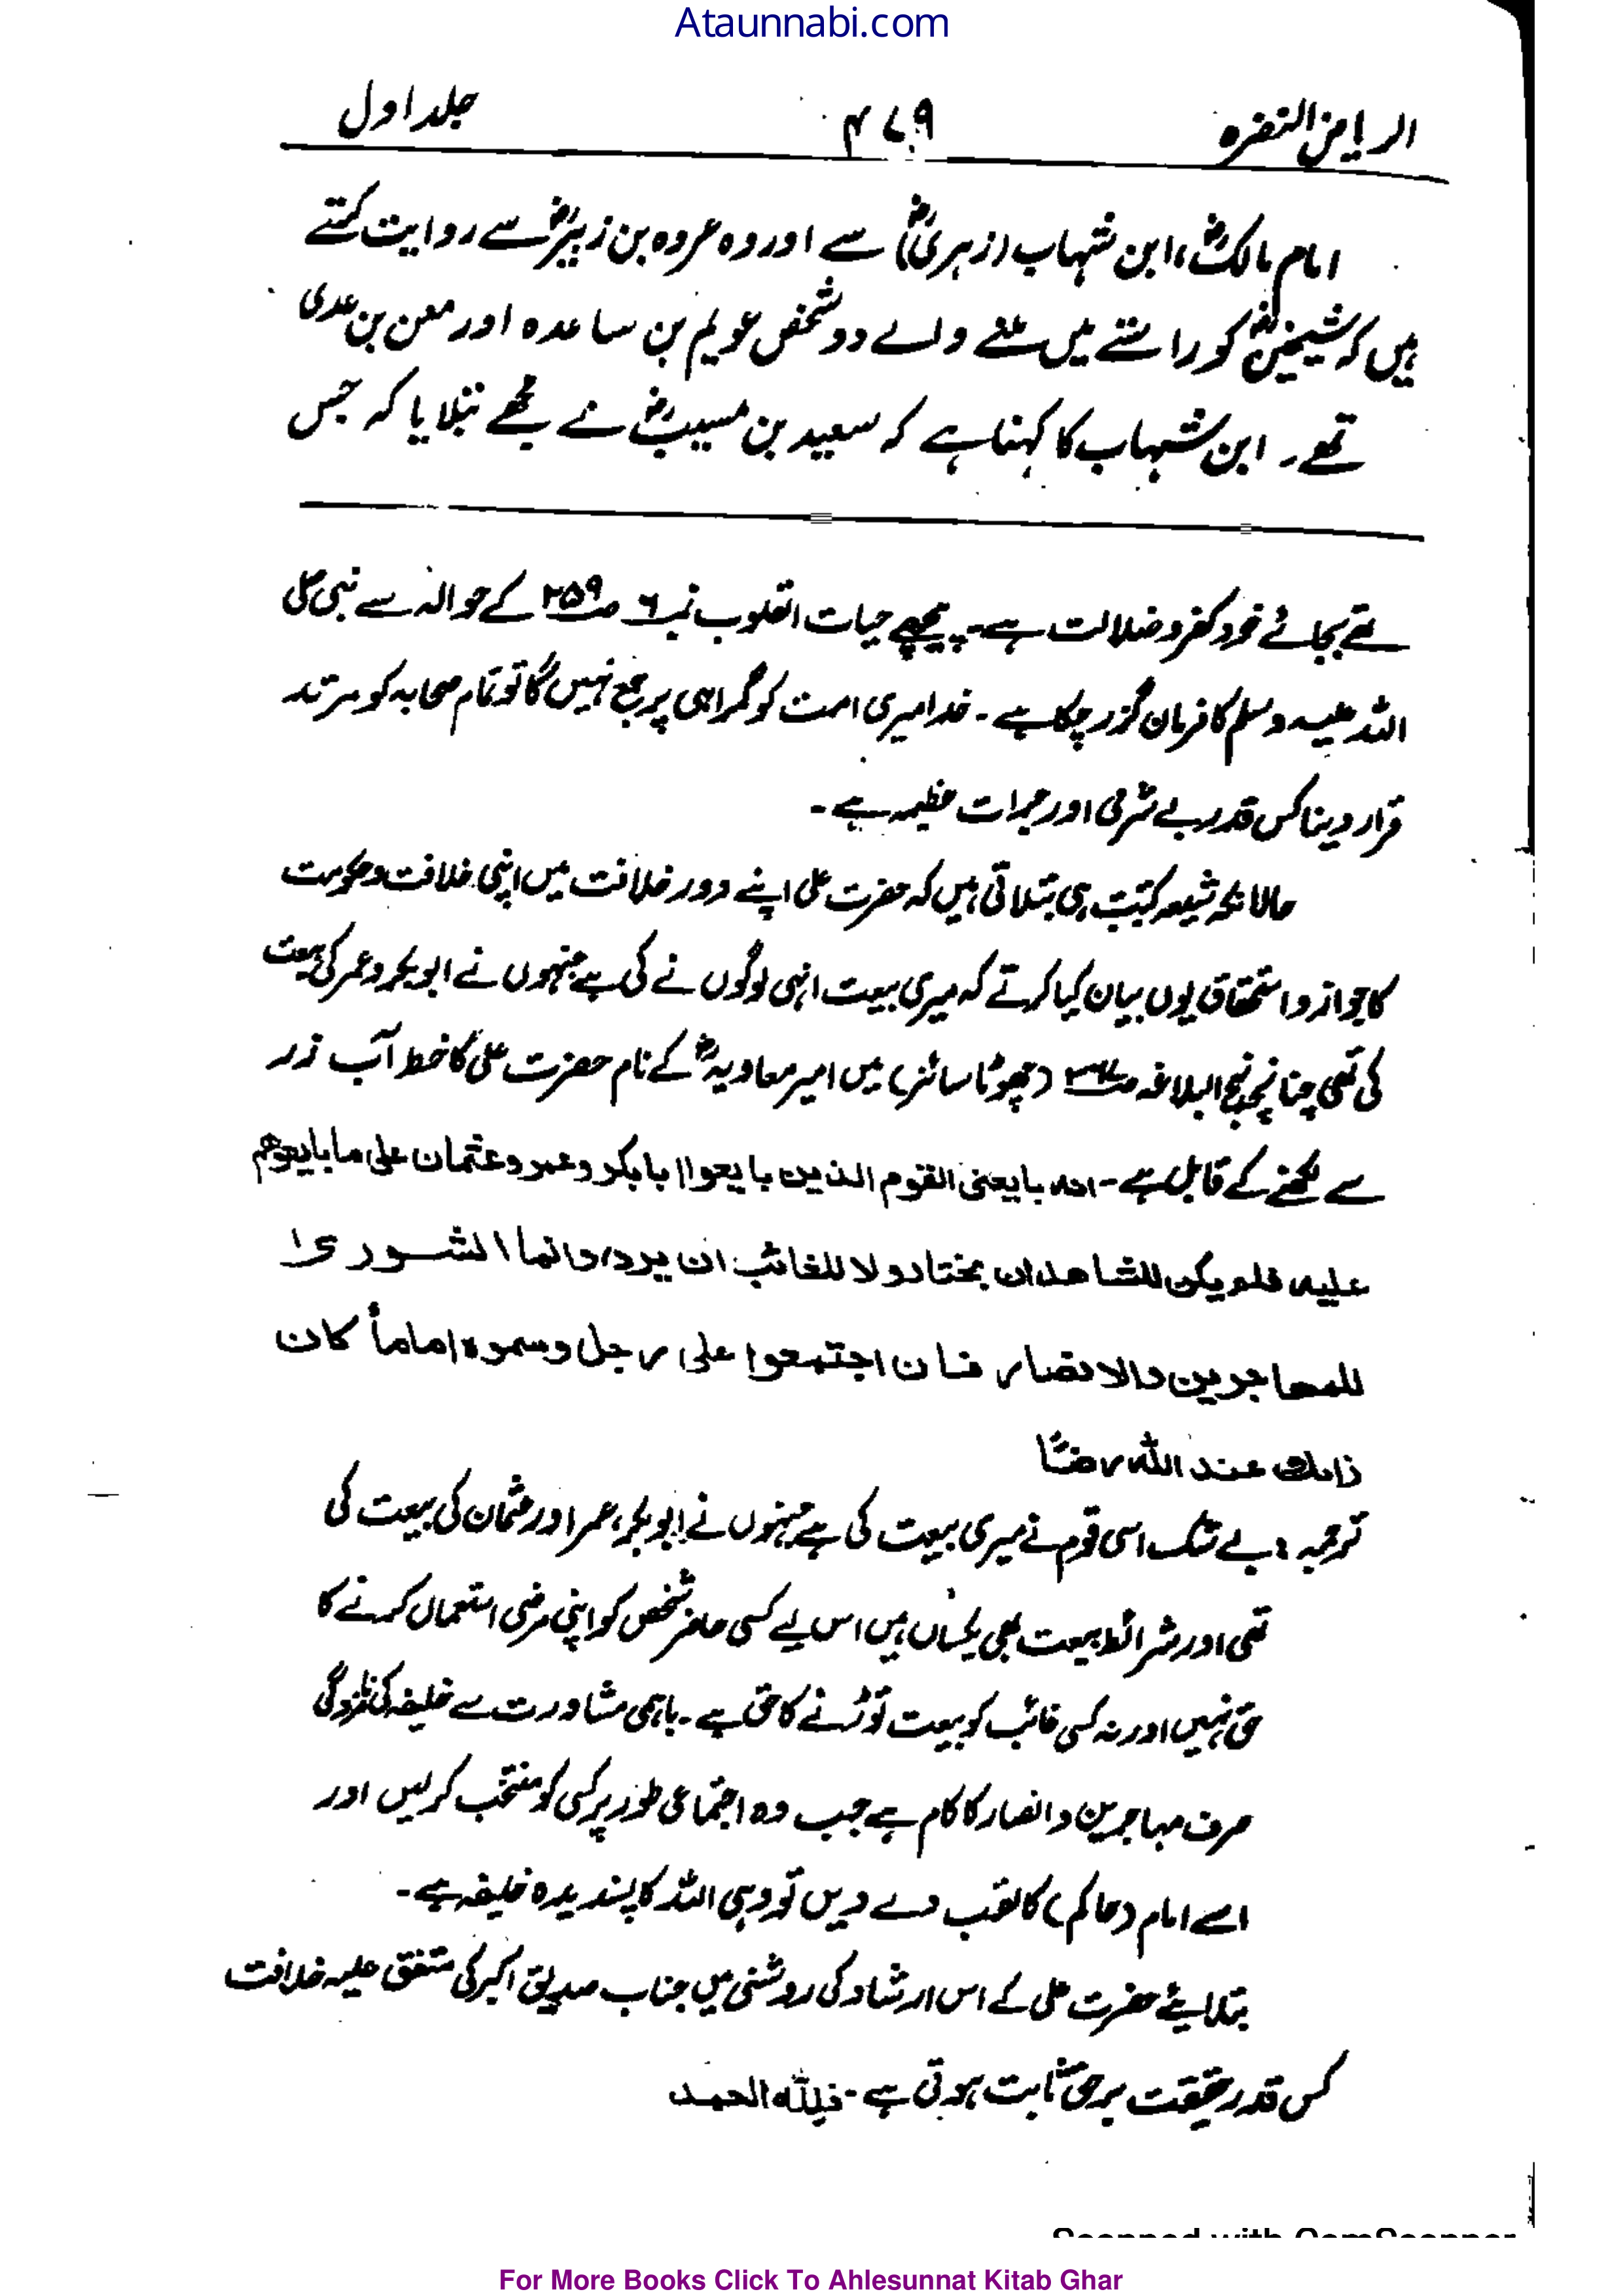 Ataunnabi.com
الریاض النضرہ ۴۷۹ جلد اول
امام مالکؒ، ابن شہاب (زہریؒ) سے اور وہ عروہ بن زبیرؓ سے روایت کرتے
ہیں کہ شیخینؓ کو راستے میں ملنے والے دو شخص عویم بن ساعدہ اور معن بن عدی
تھے۔ ابن شہاب کا کہنا ہے کہ سعید بن مسیبؓ نے مجھے بتلایا کہ جس
بجائے خود کفر و ضلالت ہے۔ پیچھے حیات القلوب نمبر ۶ ص ۲۵۹ کے حوالہ سے نبی صلی
اللہ علیہ وسلم کا فرمان گزر چکا ہے۔ خدا میری امت کو گمراہی پر جمع نہیں گا تو تمام صحابہ کو مرتد
قرار دینا کس قدر بے شرمی اور جرات عظیمہ ہے۔
حالانکہ شیعہ کتب ہی بتلاتی ہیں کہ حضرت علی اپنے دور خلافت میں اپنی خلافت و حکومت
کا جواز و استحقاق یوں بیان کیا کرتے کہ میری بیعت انہی لوگوں نے کی ہے جنہوں نے ابوبکر و عمر کی بیعت
کی تھی چنانچہ نہج البلاغہ (چھوٹا سائز) میں امیر معاویہؓ کے نام حضرت علی کا خط آب زر
سے لکھنے کے قابل ہے۔ انہ بایعنی القوم الذین بایعوا ابابکر وعمر وعثمان علی ما بایعوھم
علیہ فلم یکن للشاھد ان یختار ولا للغائب ان یرد وانما الشوریٰ
للمھاجرین والانصار فان اجتمعوا علی رجل وسموہ اماماً کان
ذالک عند اللہ رضًا
ترجمہ: بے شک اسی قوم نے میری بیعت کی ہے جنہوں نے ابوبکر، عمر اور عثمان کی بیعت کی
تھی اور شرائط بیعت بھی یکساں ہیں اس لیے کسی حاضر شخص کو اپنی مرضی استعمال کرنے کا
حق نہیں اور نہ کسی غائب کو بیعت توڑنے کا حق ہے۔ باہمی مشاورت سے خلیفہ کی نامزدگی
صرف مہاجرین و انصار کا کام ہے جب وہ اجتماعی طور پر کسی کو منتخب کر لیں اور
اسے امام (حاکم) کا لقب دے دیں تو وہی اللہ کا پسندیدہ خلیفہ ہے۔
بتلایئے حضرت علی کے اس ارشاد کی روشنی میں جناب صدیق اکبر کی متفق علیہ خلافت
کس قدر حقیقت برحق ثابت ہوتی ہے۔ فللّٰہ الحمد
Scanned with CamScanner
For More Books Click To Ahlesunnat Kitab Ghar